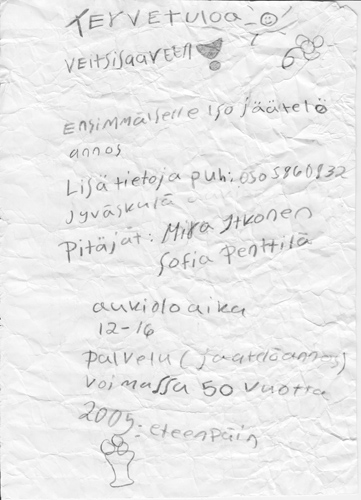 TERVETULOA
VEITSISAAREEN!
ENSIMMÄISELLE ISO jäätelö
annos
Lisätietoja puh: 050 5860832
Jyväskylä
Pitäjät: Mira Itkonen
Sofia Penttilä
aukioloaika
12-16
palvelu (jäateläannos)
voimassa 50 vuotta
2005: eteenpäin